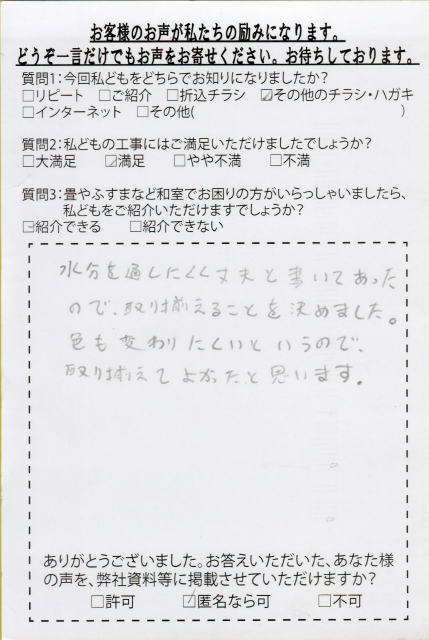 お客様のお声が私たちの励みになります。
どうぞ一言だけでもお声をお寄せください。お待ちしております。
質問1:今回私どもをどちらでお知りになりましたか?
□リピート □ご紹介 □折込チラシ ☑その他のチラシ・ハガキ
□インターネット □その他( )
質問2:私どもの工事にはご満足いただけましたでしょうか?
□大満足 ☑満足 □やや不満 □不満
質問3:畳やふすまなど和室でお困りの方がいらっしゃいましたら、
私どもをご紹介いただけますでしょうか?
☑紹介できる □紹介できない
水分を通しにくく丈夫と書いてあった
ので、取り揃えることを決めました。
色も変わりにくいというので、
取り揃えてよかったと思います。
ありがとうございました。お答えいただいた、あなた様
の声を、弊社資料等に掲載させていただけますか?
□許可 ☑匿名なら可 □不可